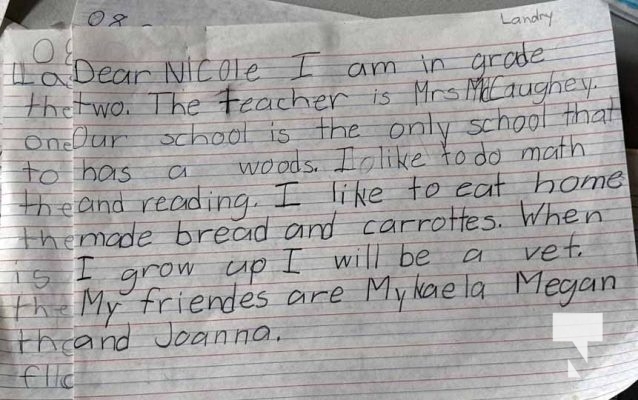 08
Landry
Dear Nicole I am in grade
two. The teacher is Mrs McCaughey.
Our school is the only school that
has a woods. I like to do math
and reading. I like to eat home
made bread and carrottes. When
I grow up I will be a vet.
My friendes are Mykaela Megan
and Joanna.
the
one
to
the
the
is
the
the